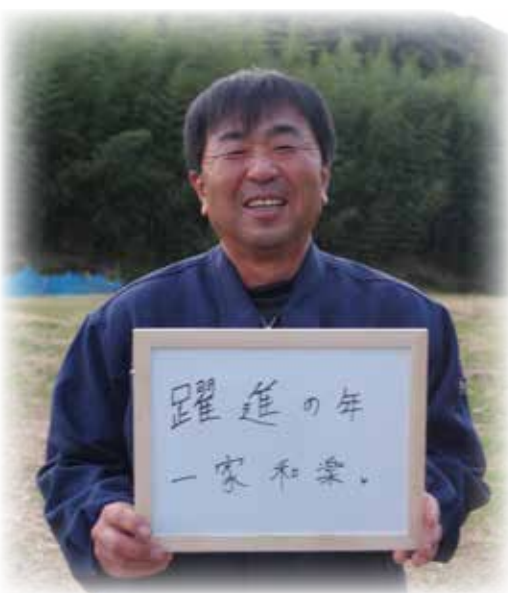 躍進の年
一家和楽。